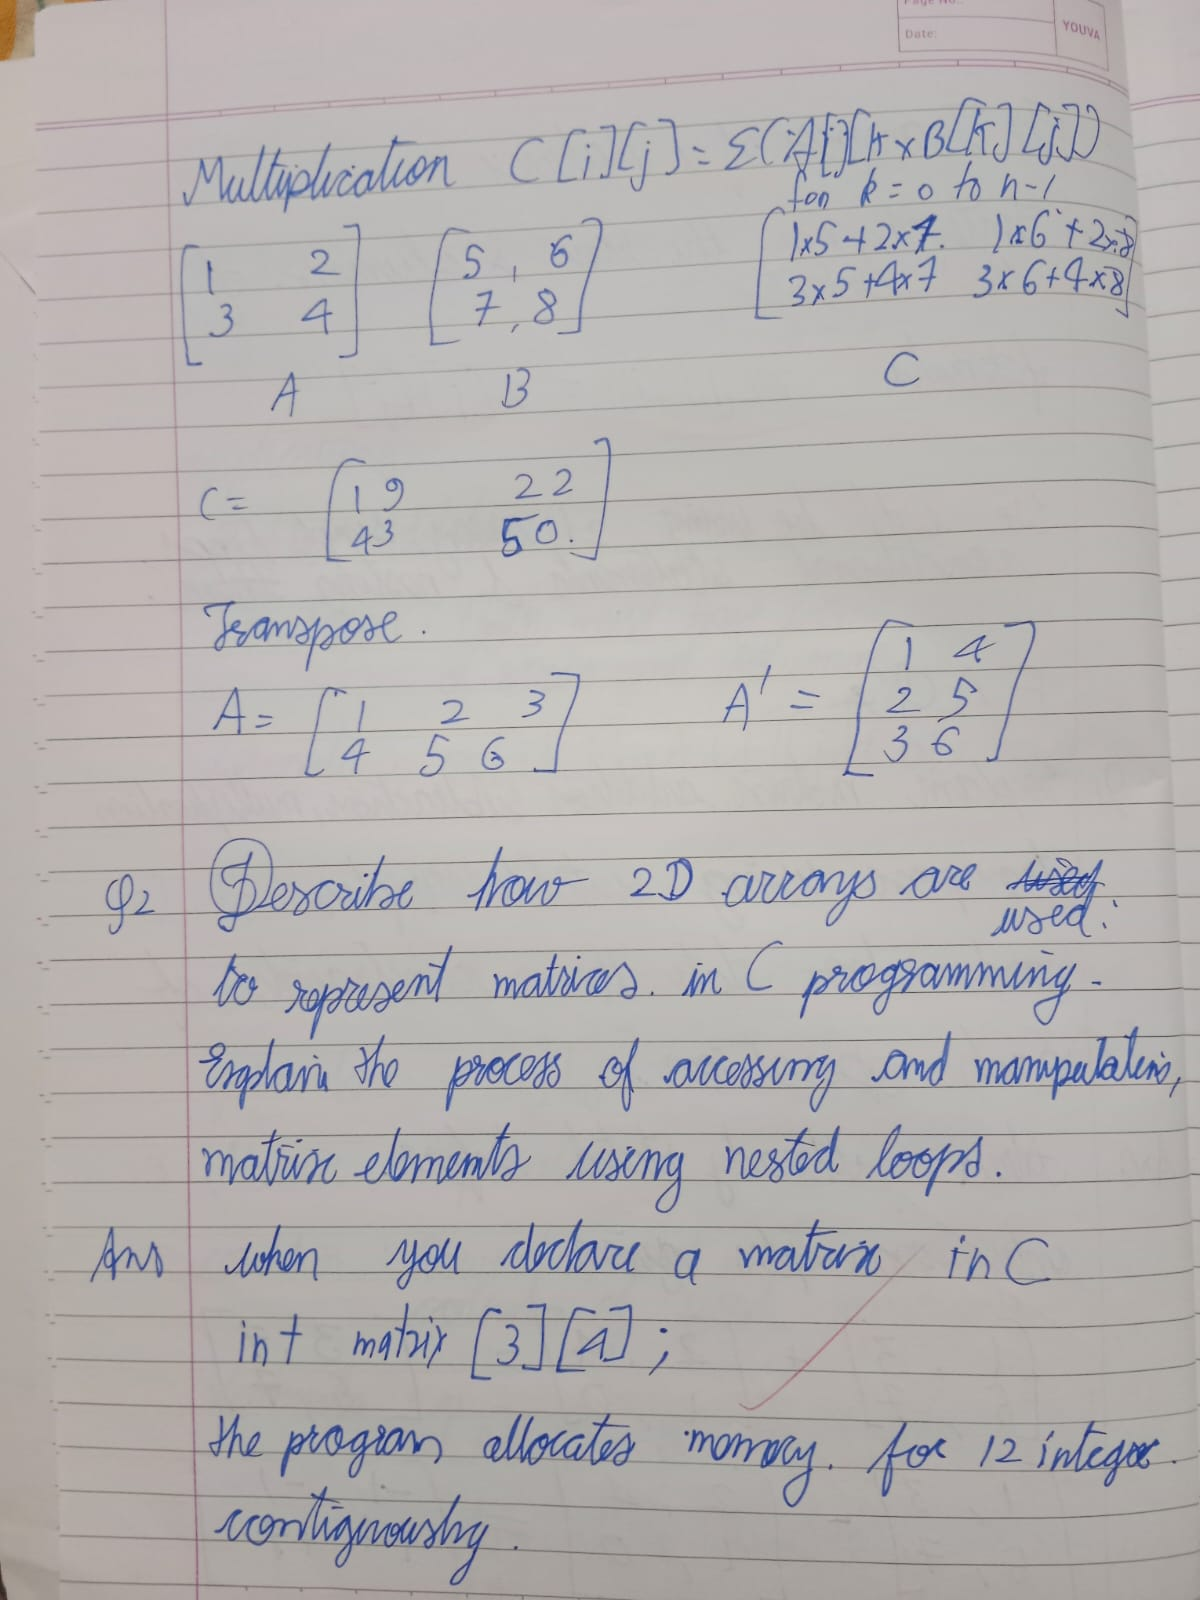 Page No.:
Date:
YOUVA
Multiplication C[i][j] = Σ(A[i][k × B[k][j])
for k = 0 to n-1
[1 2] [5, 6] [1×5+2×7. 1×6+2×8]
[3 4] [7, 8] [3×5+4×7 3×6+4×8]
A B C
C = [19 22]
[43 50.]
Transpose.
A = [1 2 3] A' = [1 4]
[4 5 6] [2 5]
[3 6]
Q2 Describe how 2D arrays are used
used.
to represent matrices. in C programming.
Explain the process of accessing and
matrix elements using nested loops.
Ans when you declare a matrix in C
int matrix [3][4];
the program allocates memory. for 12
contiguously.